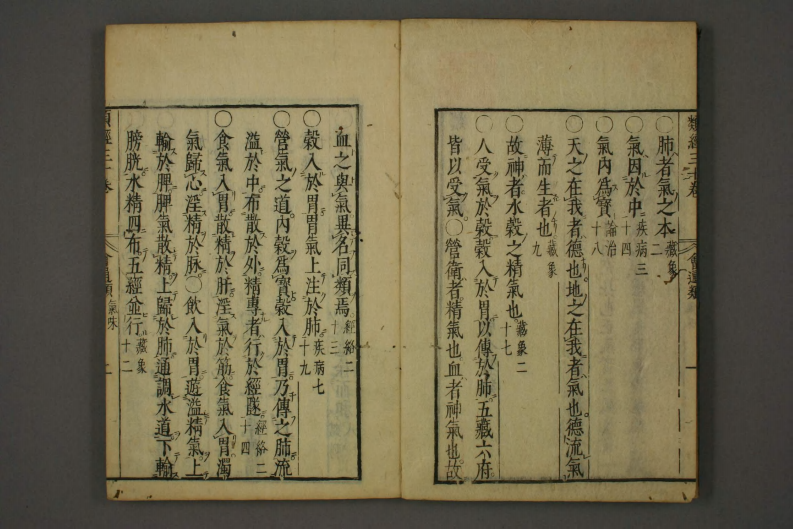 類經三十卷 會通類 一
〇肺者氣之本藏象二
〇氣因於中疾病三十四
〇氣內為寳論治十八
〇天之在我者德也地之在我者氣也德流氣
薄而生者也藏象九
故神者水穀之精氣也藏象二十七
〇人受氣於穀穀入於胃以傳於肺五藏六府
皆以受氣〇營衛者精氣也血者神氣也故
血之與氣異名同類焉經絡二十三
〇穀入於胃胃氣上注於肺疾病七十九
〇營氣之道內穀為寳穀入於胃乃傳之肺流
溢於中布散於外精專者行於經隧經絡二十四
〇食氣入胃散精於肝淫氣於筋食氣入胃濁
氣歸心淫精於脉〇飲入於胃遊溢精氣上
輸於脾脾氣散精上歸於肺通調水道下輸
膀胱水精四布五經並行藏象十二
類經三十卷 會通類 氣味 一